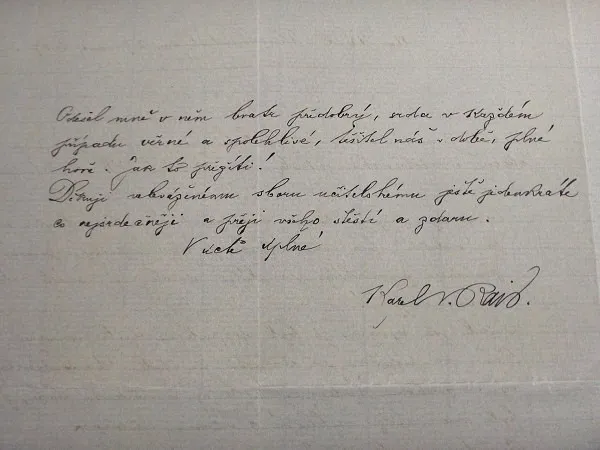 Odešel mně v něm bratr předobrý, srdce v každém
případu věrné a spolehlivé, těšitel náš v době, plné
hoře. Jak to přežíti!
Děkuji velváženému sboru učitelskému ještě jedenkráte
co nejsrdečněji a přeji všeho štěstí a zdaru.
V úctě úplné
Karel V. Rais.